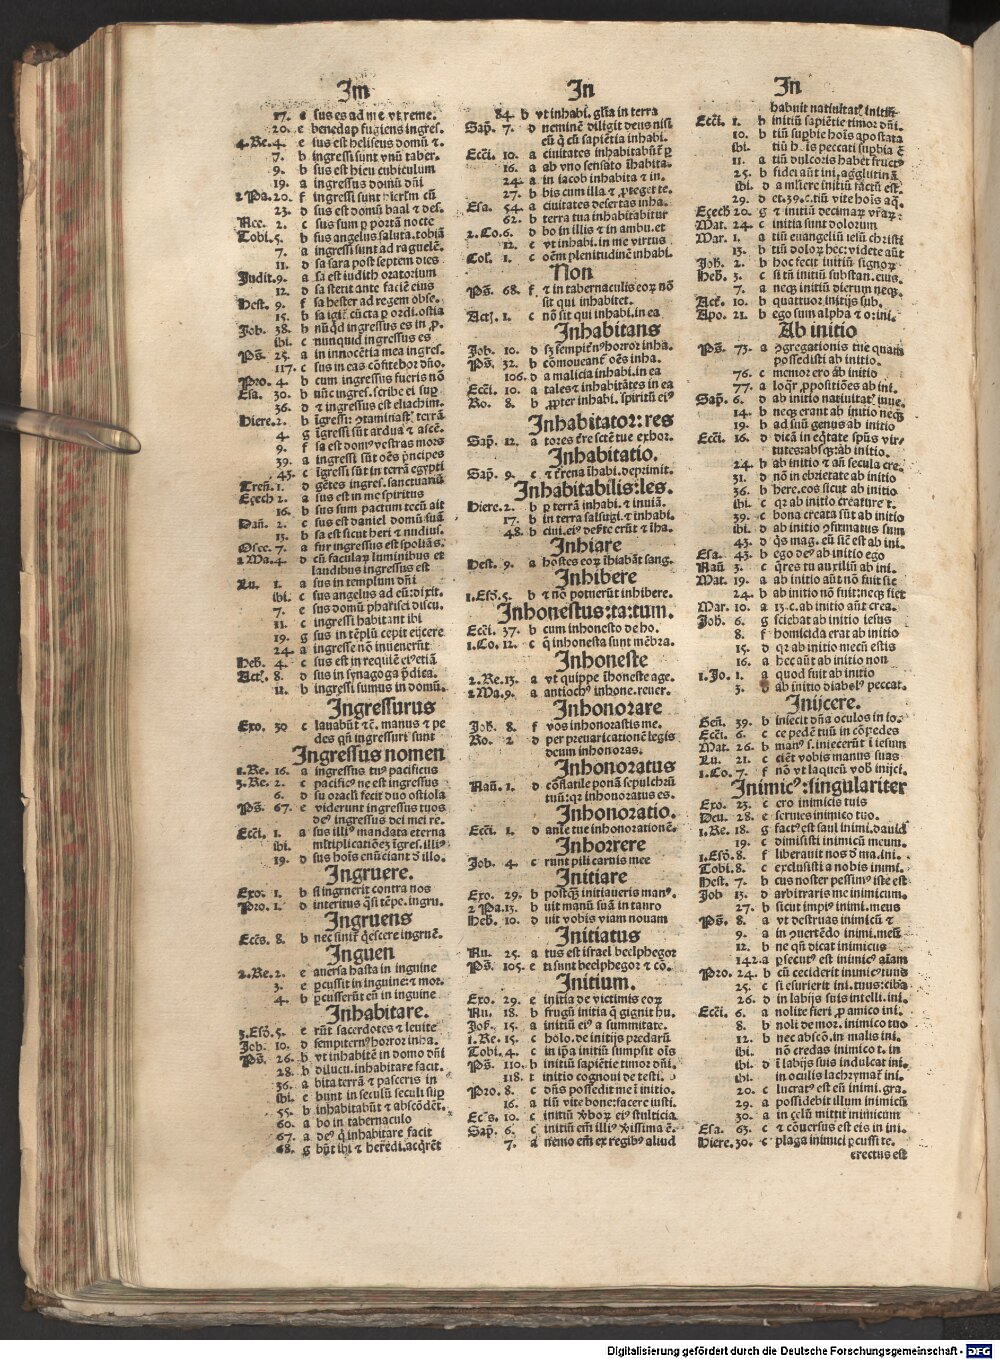 Im
17. e sus es ad me vt reme.
20. e benedaꝑ fugiens ingres.
4.Re.4. e ius est heliseus domū ⁊.
7. b ingressi sunt vnū taber.
9. b sus est hieu cubiculum
19. a ingressus domū dñi
2 Pa.20. f ingressi sunt
23. d sus est domū baal ⁊ des.
Nee. 2. c sus sum ꝑ portā nocte
Tobi.5. b sus angelus saluta.tobiā
7. a ingressi sunt ad raguelē.
11. d sa sara post septem dies
Judit.9. a sa est iudith oratorium
12. d sa stetit ante faciē eius
Hest. 9. f sa hester ad regem obse.
15. b sa igit̄ cūcta ꝑ ordi.ostia
Job. 38. b nūqd ingressus es in ꝓ.
ibi. c nunquid ingressus es
Ps̄. 25. a in innocētia mea ingres.
117. c sus in eas cōfitebor dño.
Pro. 4. b cum ingressus fueris nō
Esa. 30. b nūc ingres.scribe ei suꝑ
36. d ⁊ ingressus est eliachim.
Hiere.2. b
4. g īgressi sūt ardua ⁊ ascē.
9. f sa est domꝰ vestras mors
39. a ingressi sūt oēs pncipes
43. c īgressi sūt in terrā egypti
Treñ.1. d gētes ingres.sanctuariū
Ezech 2. a sus est in me spiritus
16. b sus sum pactum tecū ait
Dañ. 2. c sus est daniel domū suā
13. b sa est sicut heri ⁊ nudius.
Osee. 7. a fur ingressus est spoliās.
2 Ma.4. d cū facularꝝ luminibus et
landibus ingressus est
Lu. 1. a sus in templum dñi
ibi. c sus angelus ad eū:dixit.
7. e sus domū pharisei discu.
11. c ingressi habitant ibi
19. g sus in tēplū cepit eijcere
24. a ingresse nō inuenerūt
Heb̄. 4. c sus est in requiē eiꝰ etiā
Act̄. 8. d sus in synagoga p̄dica.
11. b ingressi sumus in domū.
Ingressurus
Exo. 30 c lauabūt ⁊ c̄. manus ⁊ pe
des qñ ingressuri sunt
Ingressus nomen
1.Re. 16. a ingressus tuꝰ pacificus
3.Re. 2. c pacificꝰ ne est ingressus
6. d su oracli fecit duo ostiola
Ps̄. 67. e viderunt ingressus tuos
deꝰ ingressus dei mei re.
Ecci̅. 1. a sus illiꝰ mandata eterna
ibi. mltiplicationē īgres.illiꝰ
19. d sus hois enūciant d illo.
Ingruere.
Exo. 1. b si ingruerit contra nos
Pro. 1. d interitus qsi tēpe.ingru.
Ingruens
Ecc̄s. 8. b nec sinit̄ qescere ingruē.
Inguen
2.Re.2. e auersa hasta in inguine
3. e ꝑcussit in inguine:⁊ mor.
4. b ꝑcusserūt eū in inguine
Inhabitare.
3.Esō.5. e rūt sacerdotes ⁊ leuite
Job. 10. d sempiternꝰ horror inha.
Ps̄. 26. b vt inhabitē in domo dñi
28. b dilucu.inhabitare facit.
36. a bita terrā ⁊ pasceris in
ibi c bunt in seculū seculi suꝑ
55. b inhabitabūt ⁊ abscōdēt.
60. a bo in tabernaculo
67. a deꝰ q inhabitare facit
68. g būt ibi ⁊ heredi.acqret
In
84. b vt inhabi. glīa in terra
Sap̄. 7. d neminē diligit deus nisi
eū q cū sapiētia inhabi.
Ecci̅. 10. a ciuitates inhabitabūt̄ ꝑ
16. a ab vno sensato īhabita.
24. a in iacob inhabita ⁊ in.
27. b bis cum illa ⁊ ꝓteget te.
Esa. 54. a ciuitates desertas inha.
62. b terra tua inhabitabitur
2.Co.6. d bo in illis ⁊ in ambu.et
12. c vt inhabi.in me virtus
Col̄. 1. c oēm plenitudinē inhabi.
Non
Ps̄. 68. f ⁊ in tabernaculis eoꝝ nō
sit qui inhabitet.
Act̄. 1. c nō sit qui inhabi.in ea
Inhabitans
Job. 10. d sꝫ sempitn̄ꝰhorror inha.
Ps̄. 32. b cōmoueant̄ oēs inha.
106. d a malicia inhabi.in ea
Ecci̅. 10. a tales ⁊ inhabitātes in ea
Ro. 8. b ꝓpter inhabi.spiritū eiꝰ
Inhabitator:res
Sap̄. 12. a tores t̄re scte tue exhor.
Inhabitatio.
Sap̄. 9. c ⁊ t̄rena īhabi.deprimit.
Inhabitabilis:les.
Hiere.2. b ꝑ terrā inhabi.⁊ inuiā.
17. b in terra salsugi.⁊ inhabi.
48. b ciui.eiꝰ
Inhiare
Hest. 9. a hostes eoꝝ īhiabāt sang.
Inhibere
1.Esō.5. b ⁊ nō potuerūt inhibere.
Inhonestus:ta:tum.
Ecci̅. 37. b cum inhonesto de ho.
1.Co.12. c q inhonesta sunt mēbra.
Inhoneste
2.Re.13. a vt quippe īhoneste age.
2 Ma.9. a antiochꝰ inhone.reuer.
Inhonorare
Job̄. 8. f vos inhonorastis me.
Ro. 2 d per preuaricationē legis
deum inhonoras.
Inhonoratus
Naū. 1. d cōflatile ponā sepulchrū
tuū:qr inhonoratus es.
Inhonoratio.
Ecci̅. 1. d anie tue inhonorationē.
Inhorrere
Job. 4. c runt pili carnis mee
Initiare
Exo. 29. b postqꝫ initiaueris manꝰ.
2 Pa.13. b uit manū suā in tauro
Heb. 10. d uit vobis viam nouam
Initiatus
Nu. 25. a tus est israel beelphegor
Ps̄. 105. e ti sunt beelphegor ⁊ cō.
Initium.
Exo. 29. e initia de victimis eoꝝ
Nu. 18. b frugū initia q gignit hu.
Jos. 15. a initiū eiꝰ a summitate.
1.Re.15. c holo.de initijs predarū
Tobi.4. c in ipa initiū sumpsit oīs
Ps̄. 110. b initiū sapiētie timor dñi.
118. t initio cognoui de testi.
Pro. 8. c dñs possedit me ī initio.
16. a tiū vite bone:facere iusti.
Ec̄s. 10. c initiū ꝟboꝝ eiꝰ stulticia
Sap̄. 6. c initiū em̄ illiꝰ ꝟissima ē.
7. a nemo em̄ ex regibꝰ aliud
In
habuit natiuitat̄.
Ecci̅. 1. b initiū sapiētie timor dñi.
10. b tiū supbie hoīs apostata
ibi. tiū h̄ is peccati suphia ē
11. a tiū dulcoris habet fructꝰ
25. b fidei aūt ini.agglutinā
ibi. d a mliere initiū factū est.
29. d et.39.c.tiū vite hoīs aq.
Ezech 20. g ⁊ initiū decimaꝝ vraꝝ:
Mat. 24. c initia sunt dolorum
Mar. 1. a tiū euangelij iesu christi
13. b tiū doloꝝ hec: videte aūt
Job̄. 2. b hoc fecit initiū signoꝝ
Heb̄. 3. c si tn̄ initiū substan.eius.
7. a neqꝫ initiū dierum neqꝫ.
Act̄. 10. b quattuor initijs sub.
Apo. 21. b ego sum alpha ⁊ o:ini.
Ab initio
Ps̄. 73. a ꝯgregationis tue quam
possedisti ab initio.
76. c memor ero ab initio
77. a loqr ꝓpositiōes ab ini.
Sap̄. 6. d ab initio natiuitat̄.inue.
14. b neqꝫ erant ab initio neqꝫ
19. b ad suū genus ab initio
Ecci̅. 16. d dicā in eqtate spūs vir⸗
tutes:absqꝫ:ab initio.
24. b ab initio ⁊ añ secula cre.
31. d nō in ebrietate ab initio
36. b here.eos sicut ab initio
ibi. c qr ab initio creature t.
39. c bona creata sūt ab initio
ibi. d ab initio ꝯfirmatus sum
43. d qs mag.eū sic̄ est ab ini.
Esa. 43. b ego deꝰ ab initio ego
Naū 3. c qres tu auxiliū ab ini.
Mat. 19. a ab initio aūt nō fuit sic
24. b ab initio nō fuit:neqꝫ fiet
Mar. 10. a 13.c.ab initio aūt crea.
Job̄. 6. g sciebat ab initio iesus
8. f homicida erat ab initio
15. d qr ab initio mecū estis
16. a hec aūt ab initio non
1.Jo. 1. a quod fuit ab initio
3. d ab initio diabolꝰ peccat.
Inijcere.
Geñ. 39. b iniecit dña oculos in io.
Ecci̅. 6. c ce pedē tuū in cōpedes
Mat. 26. b manꝰ s.iniecerūt ī iesum
Lu. 21. c cient vobis manus suas
1.Co. 7. f nō vt laqueū vob̄ inijci.
Inimicꝰ:singulariter
Exo. 23. c ero inimicis tuis
Deu. 28. e seruies inimico tuo.
1.Re. 18. g factꝰ est saul inimi.dauid
19. c dimisisti inimicū meum.
1.Esō.8. f liberauit nos d ma.ini.
Tobi.8. c exclusisti a nobis inimi.
Hest. 7. b cus noster pessimꝰ iste est
Job 13. d arbitraris me inimicum.
27. b sicut impiꝰ inimi.meus
Ps̄. 8. a vt destruas inimicū ⁊
9. a in ꝯuertēdo inimi.meū
12. b ne qñ dicat inimicus
142. a ꝑsecutꝰ est inimicꝰ aīam
Pro. 24. b cū ceciderit inimicꝰ tuus
25. c si esurierit ini.tuus:ciba
26. d in labijs suis intelli.ini.
Ecci̅. 6. a nolite fieri ꝓ amico ini.
8. b noli de mor.inimico tuo
12. b nec abscō.in malis ini.
ibi. nō credas inimico t.in
ibi. d ī labijs suis indulcat ini.
ibi. in oculis lachrymat̄ ini.
20. c lucratꝰ est eū inimi.gra.
29. a possidebit illum inimicū
30. a in zelū mittit̄ inimicum
Esa. 63. c ⁊ cōuersus est eis in ini.
Hiere.30. c plaga inimici ꝑcussi te.
erectus est
Digitalisierung gefördert durch die Deutsche Forschungsgemeinschaft - DFG